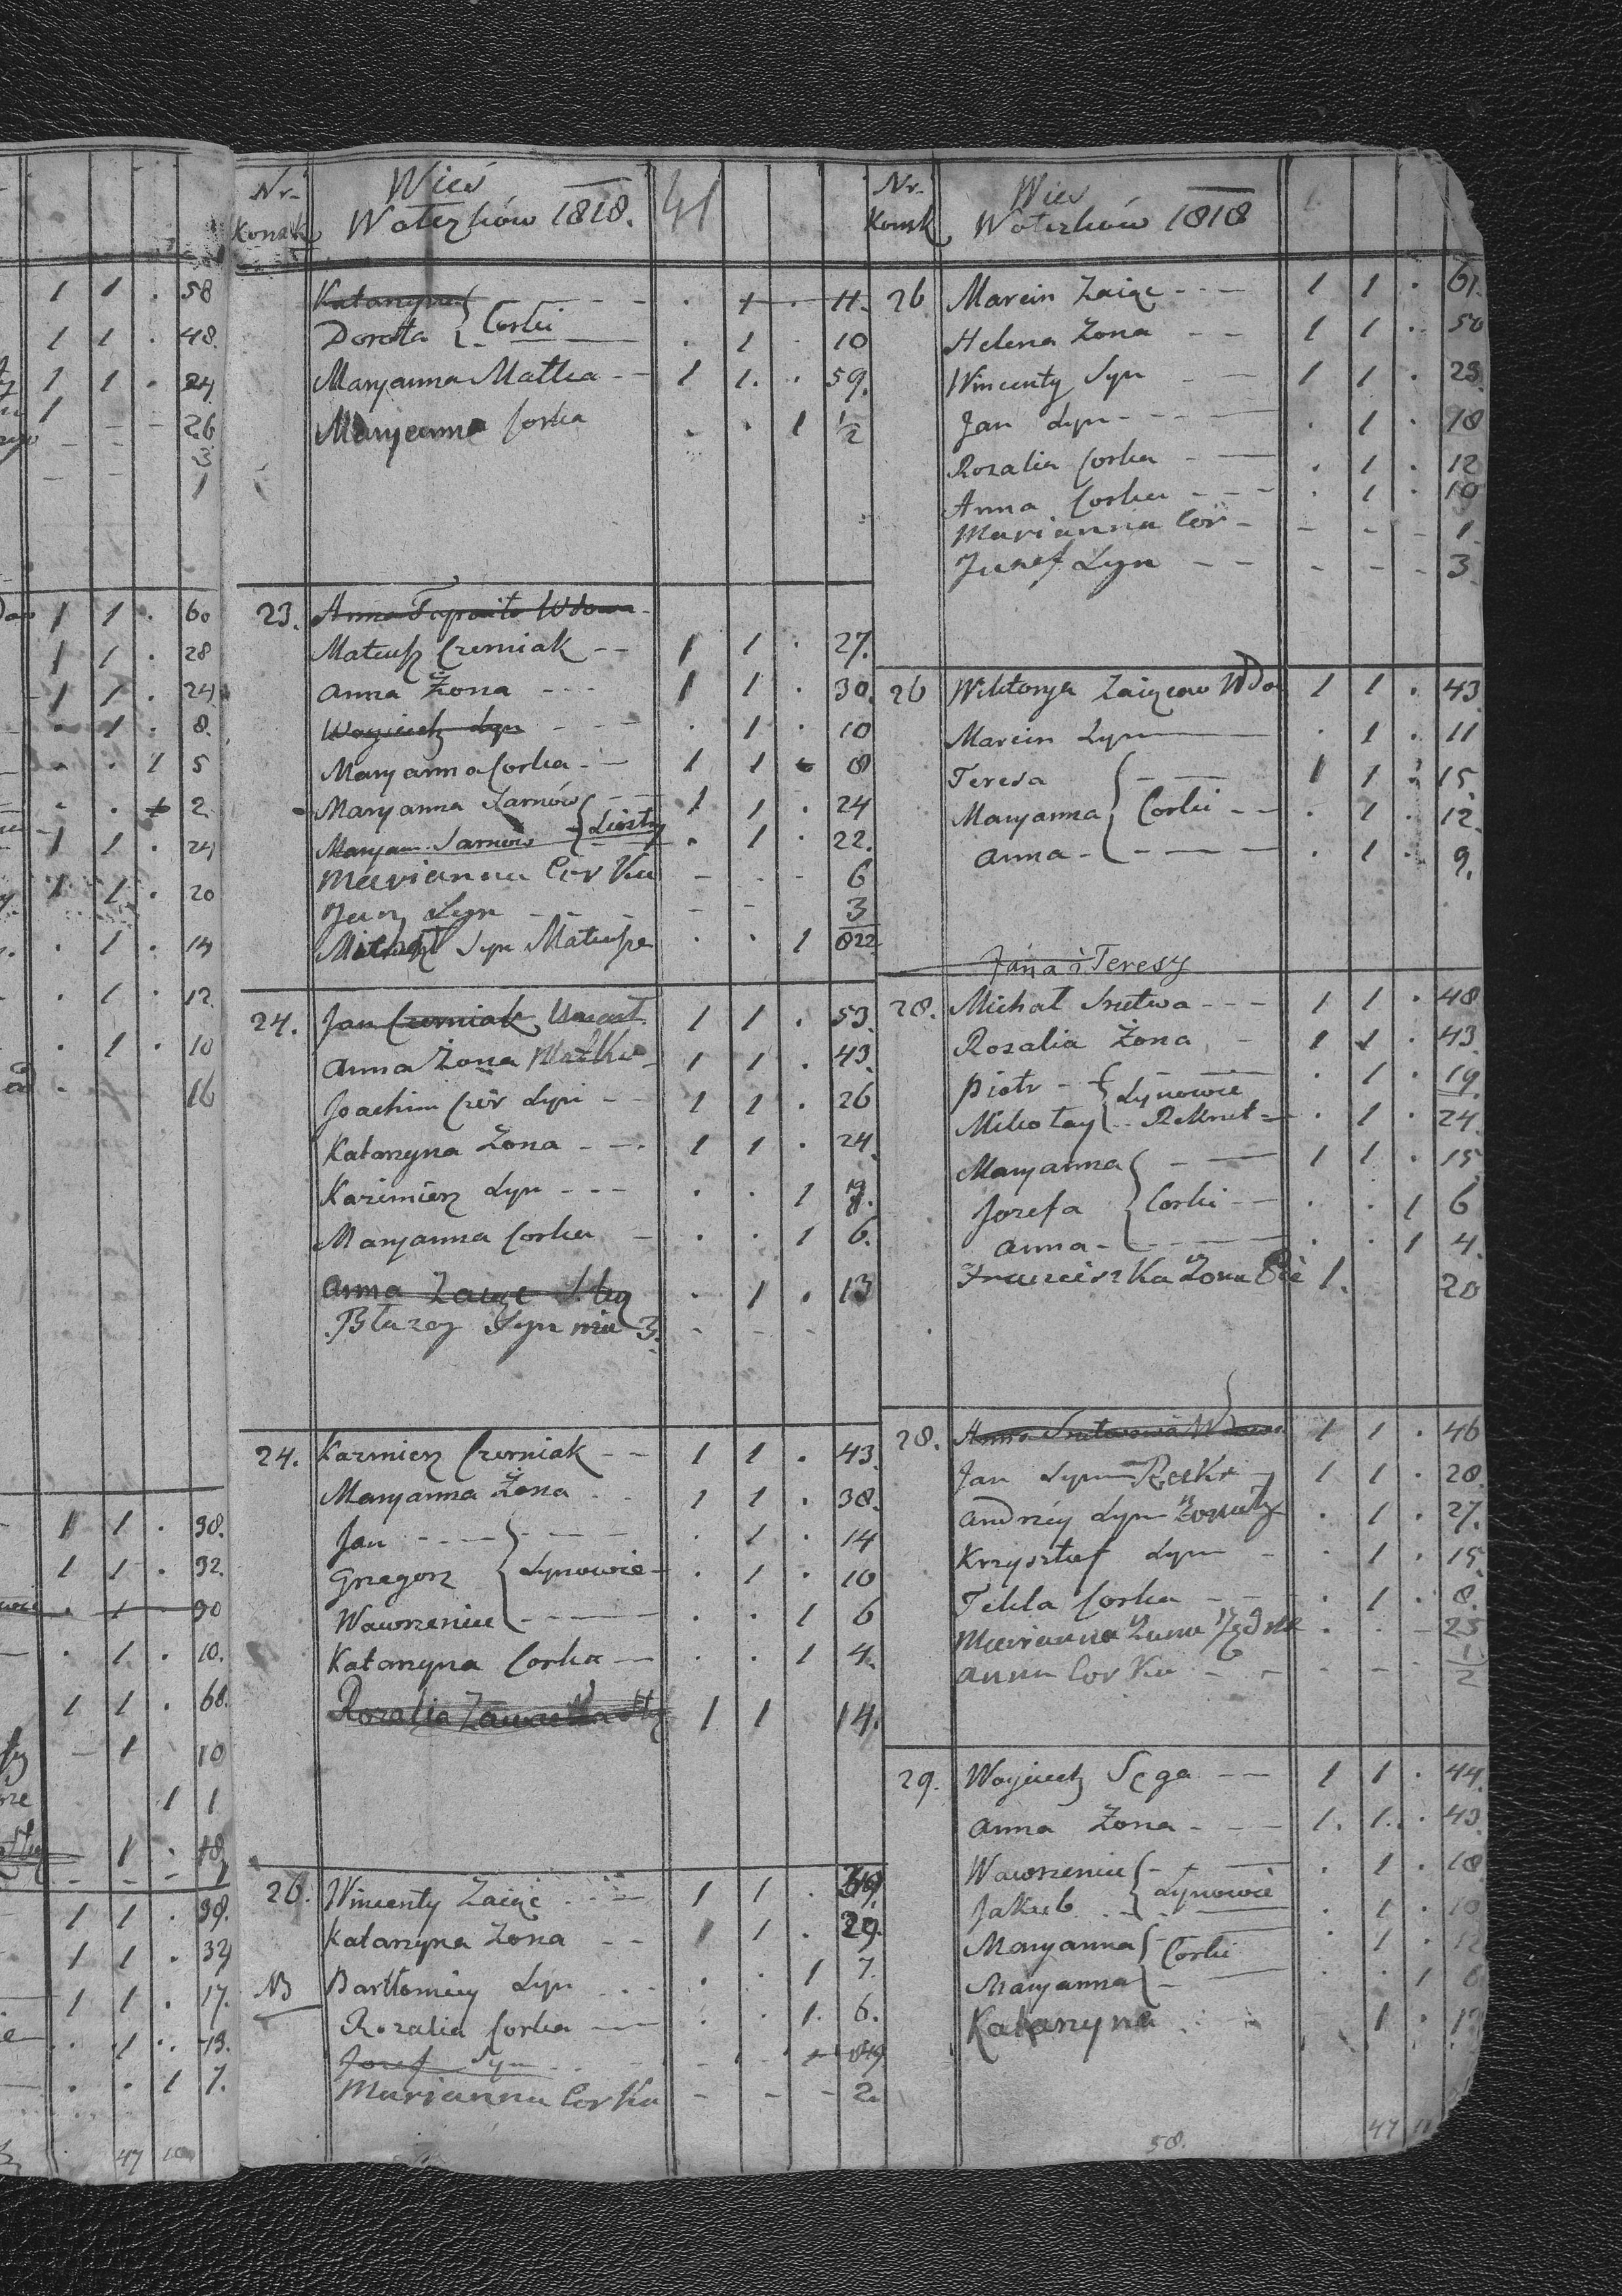 58
1 1 . 48.
1 1 . 24
26
3
1
1 1 . 60
1 1 . 28
1 1 . 24
. 1 . 8.
. . 1 5
2
1 1 . 24
1 1 . 20
. 1 . 14
. 1 . 12
. 1 . 10
16
1 1 . 38.
1 1 . 32.
. 1 . 10.
1 1 . 68.
1 10
1 1
1 1 . 39.
1 1 . 32
1 1 . 17.
. 1 . 13.
. . 1 7.
47 10
Nr. Konsk Wieś Woterków 1818. 41
Katarzyna . 1 . 11.
Dorota } Corki . 1 . 10
Maryanna Matka 1 1 . 59.
Maryanna Corka . . 1 1/2
23. Anna Wdowa
Mateusz Czerniak 1 1 . 27.
Anna Żona 1 1 . 30.
Woyciech Syn . 1 . 10
Maryanna Corka 1 1 . 8
Maryanna Sarnów 1 1 . 24
Maryan. Sarnów } Siostry . 1 . 22.
Marianna Corka - - - 6
Jan Syn - - 3
Michał Syn Mateusza . . 1
24. Jan Czerniak Umarł 1 1 . 53.
Anna Żona Matka 1 1 . 43.
Joachim Czer Syn 1 1 . 26
Katarzyna Żona 1 1 . 24.
Kazimierz Syn . . 1
Maryanna Corka . . 1 6.
Anna Zaiąc Służ . 1 . 13
Błazey Syn ma 3. - - -
24. Kazmierz Czerniak 1 1 . 43.
Maryanna Żona 1 1 . 38.
Jan . 1 . 14
Grzegorz } Synowie . 1 . 10
Wawrzeniec . . 1 6
Katarzyna Corka . . 1 4.
Rozalia 1 1 14.
26. Wincenty Zaiąc 1 1 .
Katarzyna Żona 1 1 . 29.
NB Bartłomiey Syn . . 1 7.
Rozalia Corka . . 1. 6.
Jozef Syn
Marianna Corka - - - 2.
Nr. Konsk Wieś Woterków 1818
26 Marcin Zaiąc 1 1 . 61.
Helena Żona 1 1 . 50
Wincenty Syn 1 1 . 23.
Jan Syn . 1 . 18
Rozalia Corka . 1 . 12
Anna Corka . 1 . 10
Marianna Cor - - - 1
Juzef Syn - - - 3
26 Wiktorya Zaiącow Wdo 1 1 . 43.
Marcin Syn . 1 . 11
Teresa 1 1 . 15.
Maryanna } Corki . 1 . 12.
Anna . 1 . 9.
Jana i Teresy
28. Michał Srutwa 1 1 . 48
Rozalia Żona 1 1 . 43.
Piotr } Synowie . 1 . 19.
Mikołay Rekrut . 1 . 24.
Maryanna 1 1 . 15
Jozefa } Corki . . 1 6
Anna . . 1 4.
Franciszka Żona 1. 20
28. Anna Srutwowa Wdowa 1 1 . 46
Jan Syn Rekr 1 1 . 28.
Andrzey Syn Żonaty . 1 . 27.
Krzysztof Syn . 1 . 15
Tekla Corka . 1 . 8.
Marianna Żona 25
Anna Corka - - - 1/2
29. Woyciech Sęga 1 1 . 44.
Anna Żona 1. 1. . 43.
Wawrzeniec . 1 . 18
Jakub } Synowie . 1 . 10
Maryanna } Corki . 1 . 12
Maryanna . . 1 6
Katarzyna 1 .
58. 47